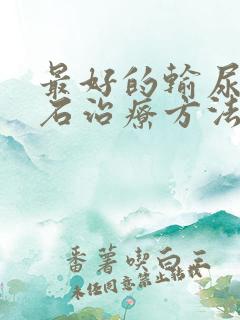 最好的输尿
石治疗方法
番薯喫白玉
未经同意禁止转载